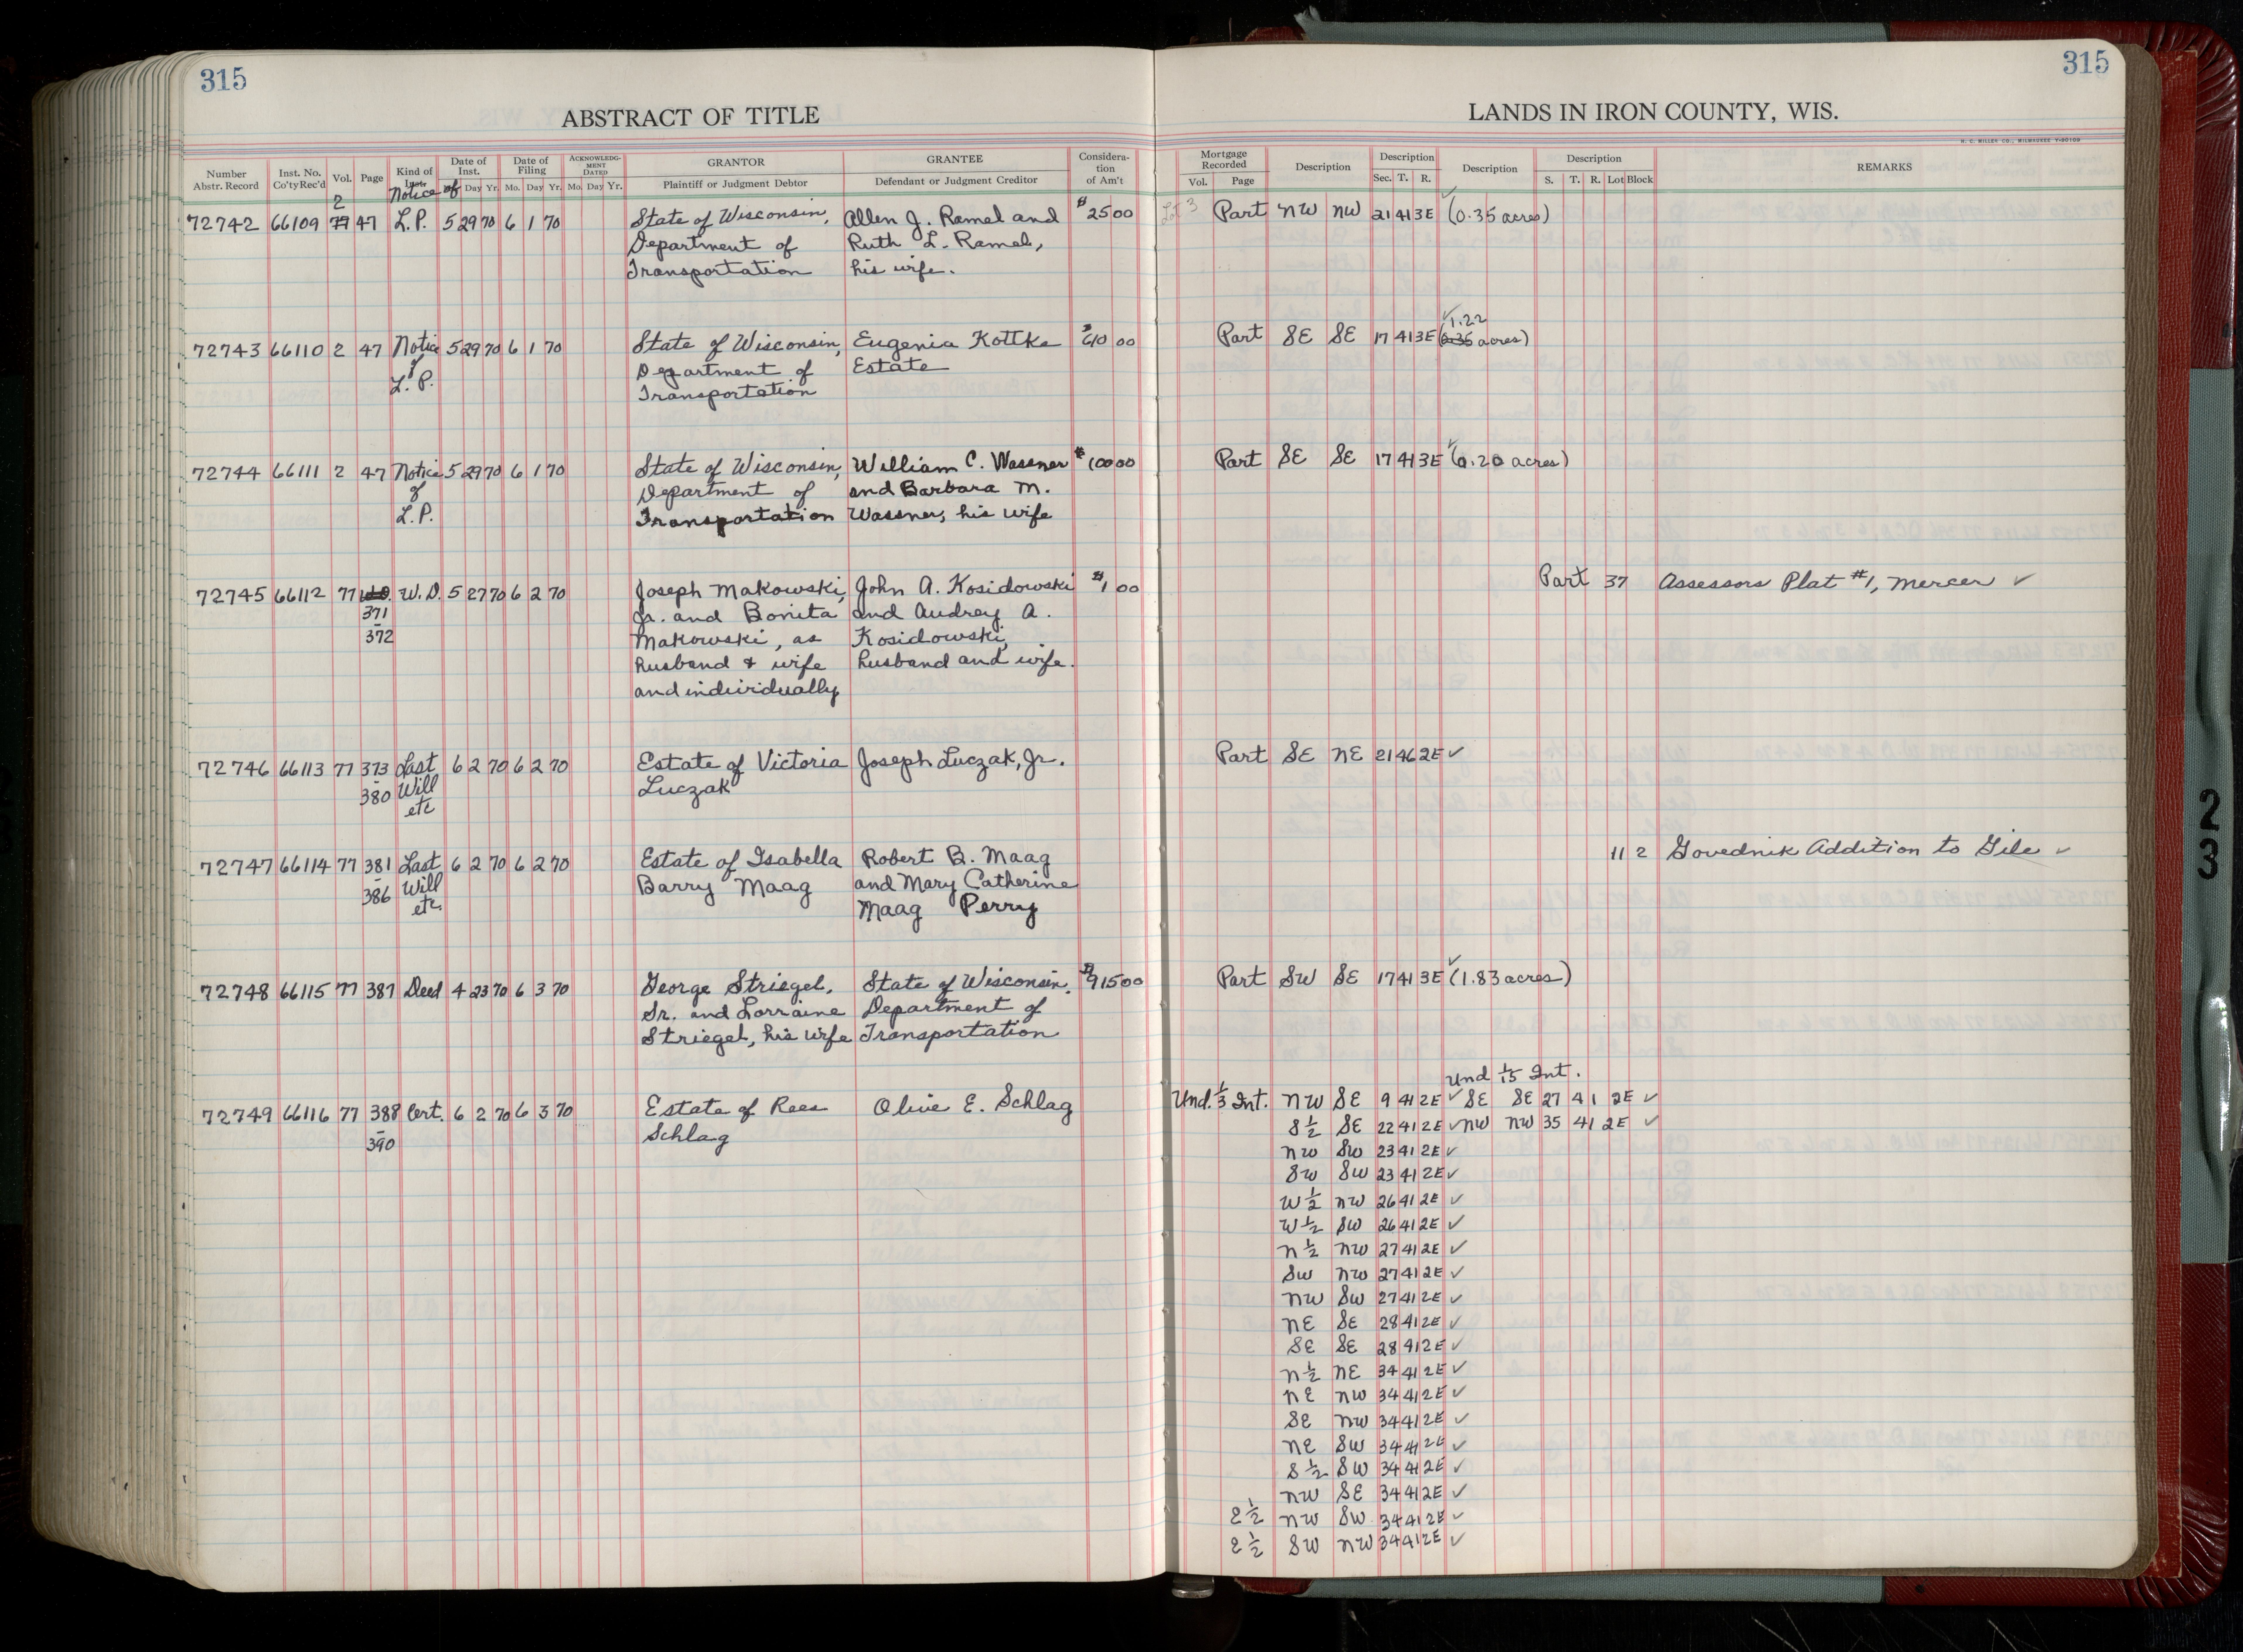 315
315
ABSTRACT OF TITLE
LANDS IN IRON COUNTY, WIS.
H. C. MILLER CO., MILWAUKEE
Number Abstr. Record
Inst. No. Co'ty Rec'd
Vol.
Page
Kind of Instr
Date of Inst.
Day Yr.
Date of Filing
Mo. Day Yr.
ACKNOWLEDGMENT DATED
Mo. Day Yr.
GRANTOR
Plaintiff or Judgment Debtor
GRANTEE
Defendant or Judgment Creditor
Consideration of Am't
Mortgage Recorded
Vol. Page
Description
Description
Sec. T. R.
Description
Description
S. T. R. Lot Block
REMARKS
Notice of
2
72742 66109 77 47 L.P. 5 29 70 6 1 70 State of Wisconsin, Allen J. Ramel and $25 00 Lot 3 Part NW NW 21 41 3E (0.35 acres)
Department of Ruth L. Ramel,
Transportation his wife.
1.22
72743 66110 2 47 Notice 5 29 70 6 1 70 State of Wisconsin, Eugenia Kottke $610 00 Part SE SE 17 41 3E (0.35 acres)
of Department of Estate
L.P. Transportation
72744 66111 2 47 Notice 5 29 70 6 1 70 State of Wisconsin, William C. Wassner $100 00 Part SE SE 17 41 3E (0.20 acres)
of Department of and Barbara M.
L.P. Transportation Wassner, his wife
72745 66112 77 W.D. 5 27 70 6 2 70 Joseph Makowski, John A. Kosidowski $1 00 Part 37 Assessors Plat #1, Mercer ✓
371 Jr. and Bonita and Audrey A.
- 372 Makowski, as Kosidowski,
husband & wife husband and wife.
and individually
72746 66113 77 373 Last 6 2 70 6 2 70 Estate of Victoria Joseph Luczak, Jr. Part SE NE 21 46 2E ✓
- 380 Will Luczak
etc
72747 66114 77 381 Last 6 2 70 6 2 70 Estate of Isabella Robert B. Maag 11 2 Govednik Addition to Gile ✓
- 386 Will Barry Maag and Mary Catherine
etc. Maag Perry
72748 66115 77 387 Deed 4 23 70 6 3 70 George Striegel, State of Wisconsin, $915 00 Part SW SE 17 41 3E (1.83 acres)
Sr. and Lorraine Department of
Striegel, his wife Transportation
Und 1/15 Int.
72749 66116 77 388 Cert. 6 2 70 6 3 70 Estate of Rees Olive E. Schlag Und. 1/3 Int. NW SE 9 41 2E ✓ SE SE 27 41 2E ✓
- 390 Schlag S½ SE 22 41 2E ✓ NW NW 35 41 2E ✓
NW SW 23 41 2E ✓
SW SW 23 41 2E ✓
W½ NW 26 41 2E ✓
W½ SW 26 41 2E ✓
N½ NW 27 41 2E ✓
SW NW 27 41 2E ✓
NW SW 27 41 2E ✓
NE SE 28 41 2E ✓
SE SE 28 41 2E ✓
N½ NE 34 41 2E ✓
NE NW 34 41 2E ✓
SE NW 34 41 2E ✓
NE SW 34 41 2E ✓
S½ SW 34 41 2E ✓
NW SE 34 41 2E ✓
E½ NW SW 34 41 2E ✓
E½ SW NW 34 41 2E ✓
23